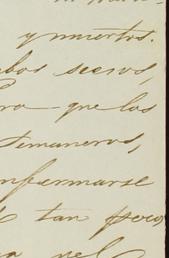 y muertos.
bos secos,
ra que los
semaneros,
nfermarse
tan poco